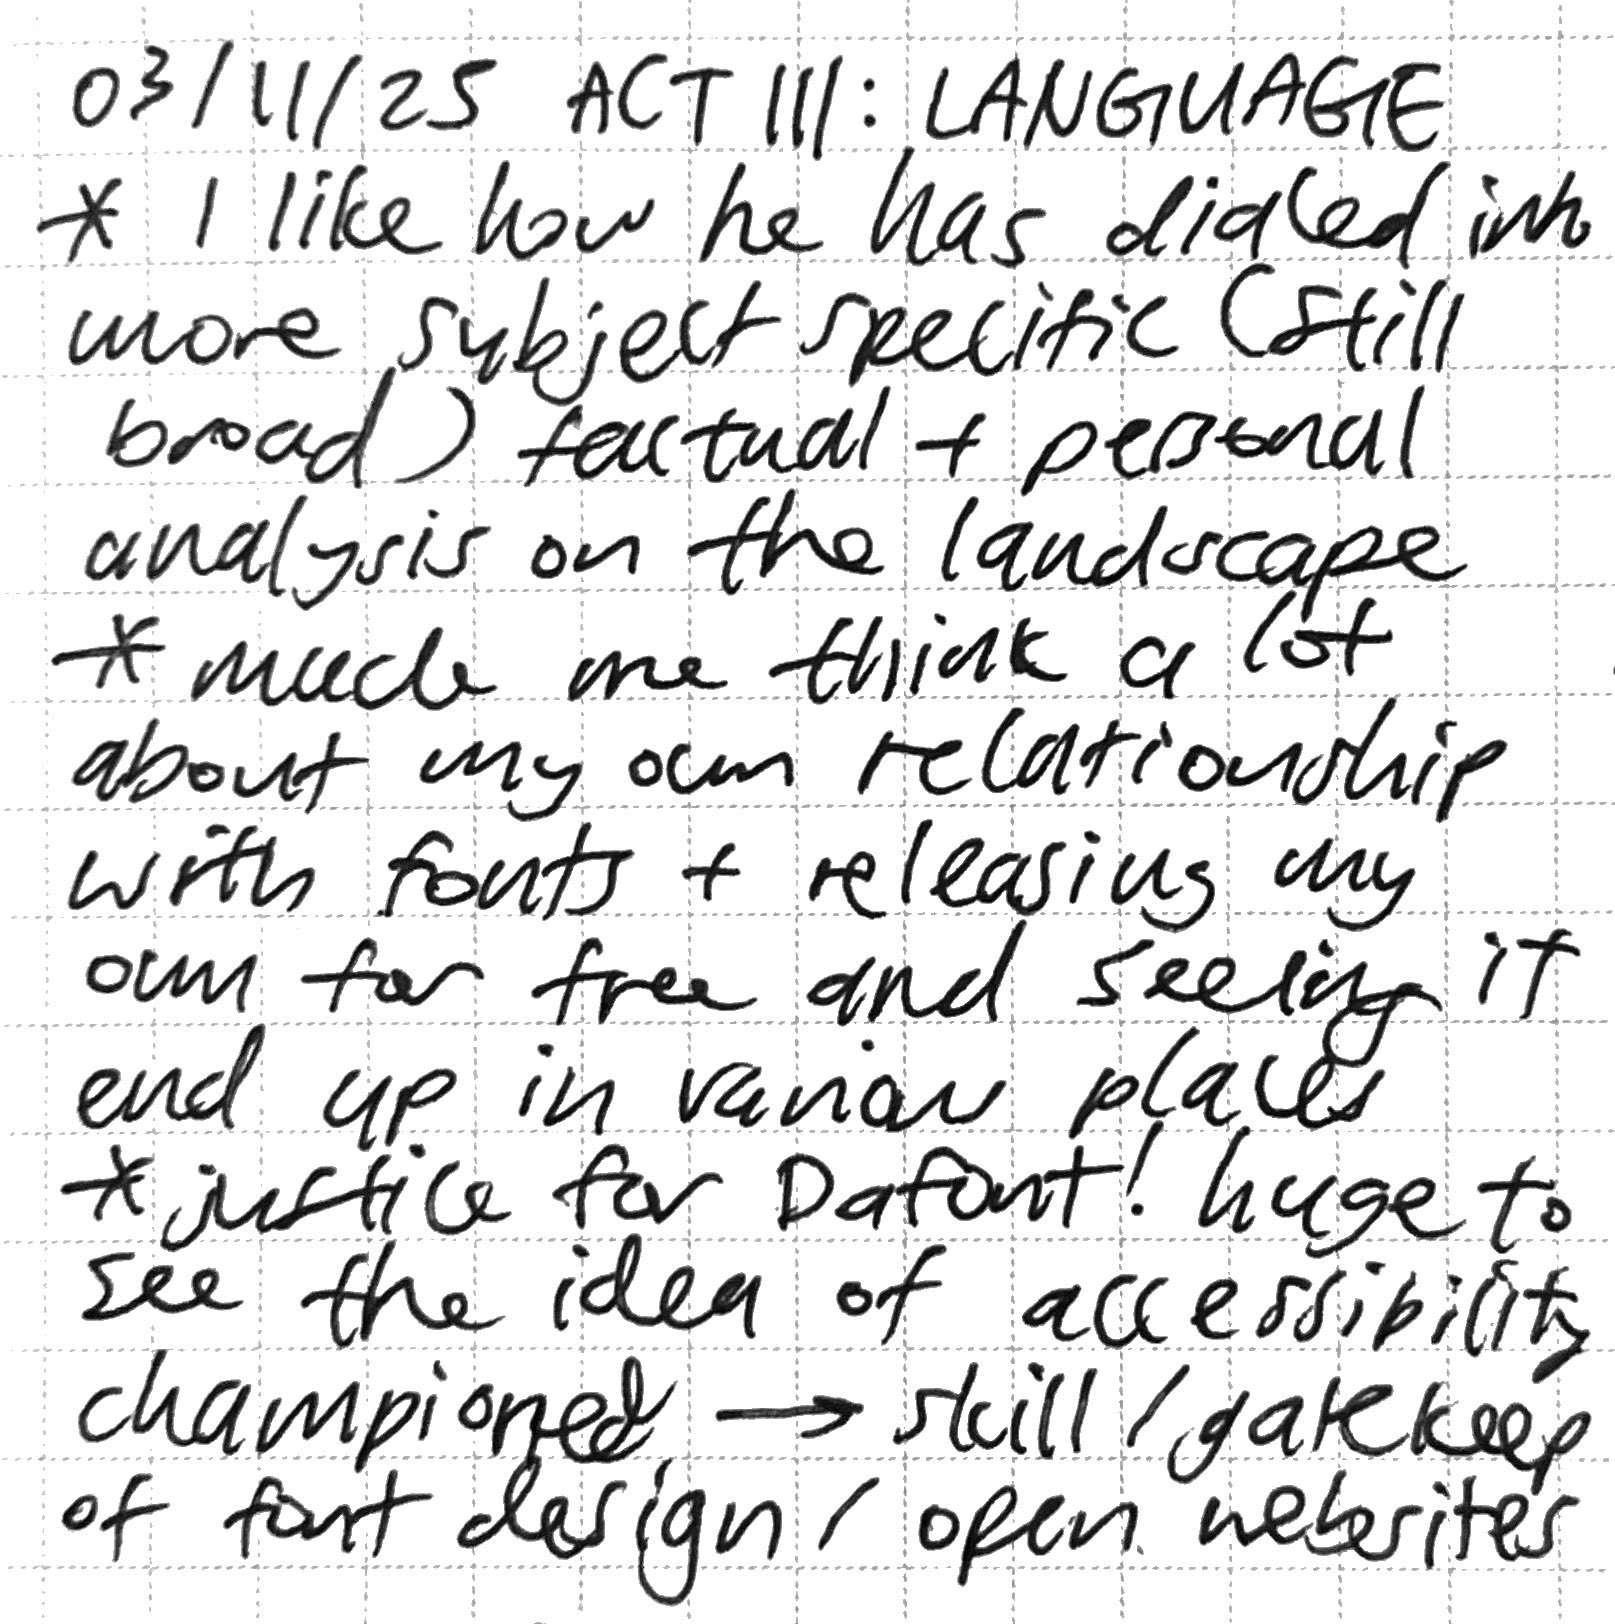 03/11/25 ACT III: LANGUAGE
* I like how he has dialed into
more subject specific (still
broad) factual + personal
analysis on the landscape
* made me think a lot
about my own relationship
with fonts + releasing my
own for free and seeing it
end up in various places
* justice for Dafont! huge to
see the idea of accessibility
championed → skill / gatekeep
of font design / open websites